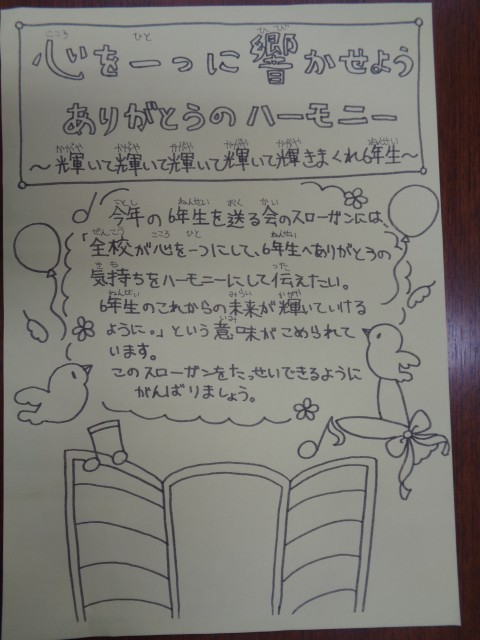 心を一つに響かせよう
ありがとうのハーモニー
～輝いて輝いて輝いて輝いて輝きまくれ6年生～
今年の6年生を送る会のスローガンには、
「全校が心を一つにして、6年生へありがとうの
気持ちをハーモニーにして伝えたい。
6年生のこれからの未来が輝いていける
ように。」という意味がこめられて
います。
このスローガンをたっせいできるように
がんばりましょう。